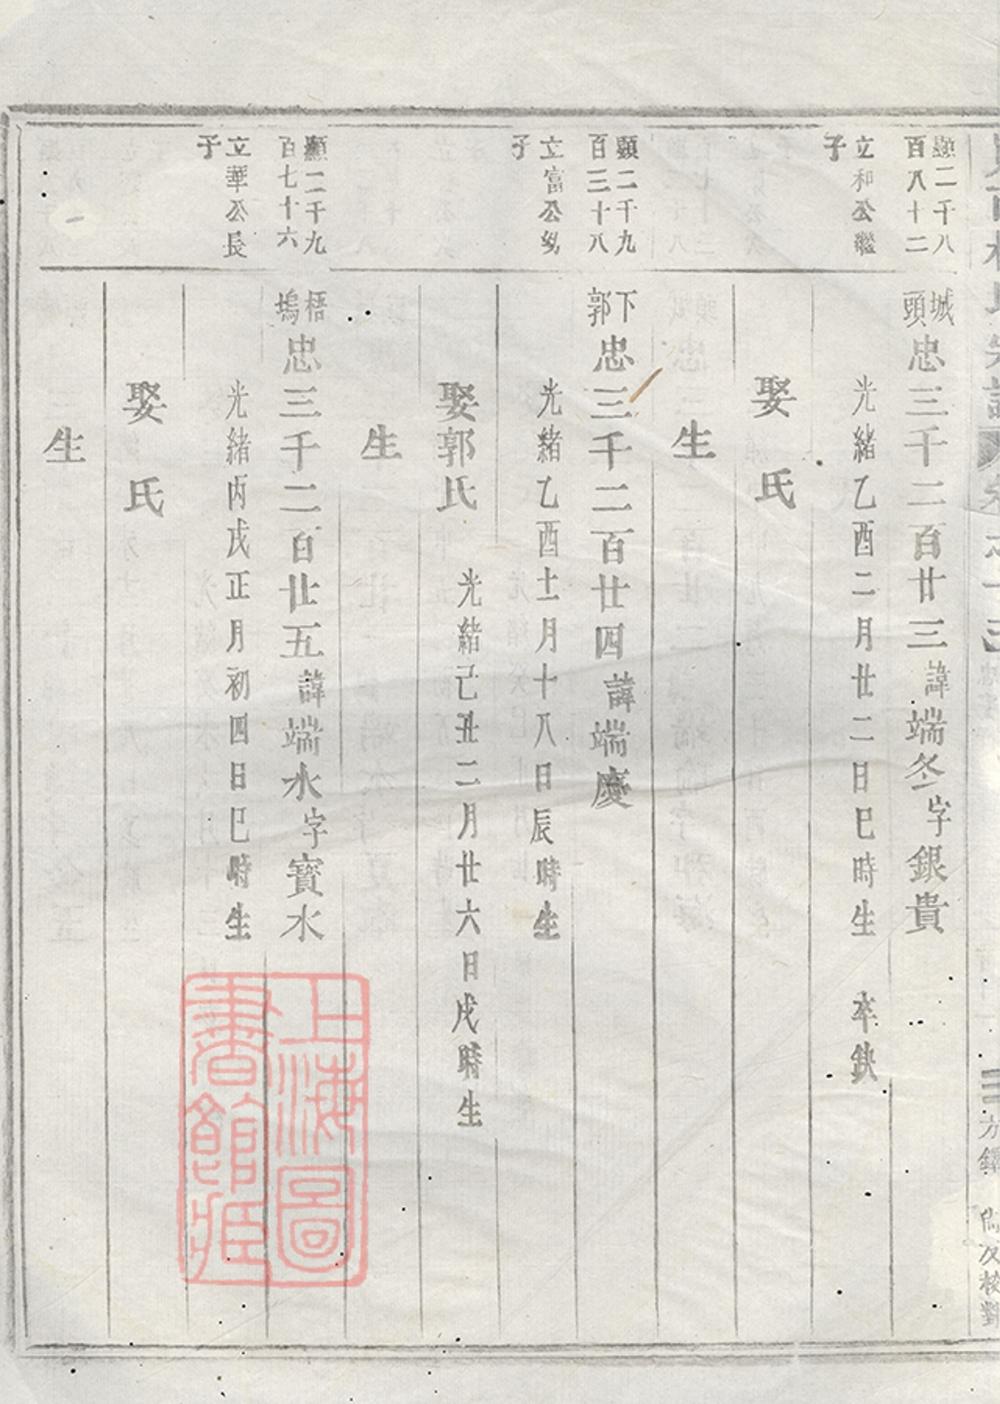 顯二千八
百八十二
立和公繼
子
城
頭
忠三千二百廿三諱端冬字銀貴
光緒乙酉二月廿二日巳時生 卒缺
娶 氏
生
顯二千九
百三十八
立富公幼
子
下
郭
忠三千二百廿四諱端慶
光緒乙酉十一月十八日辰時生
娶郭氏 光緒己丑二月廿六日戌時生
生
顯二千九
百七十六
立華公長
子
梧
塢
忠三千二百廿五諱端水字寶水
光緒丙戌正月初四日巳時生
娶 氏
生
上海圖
書館藏